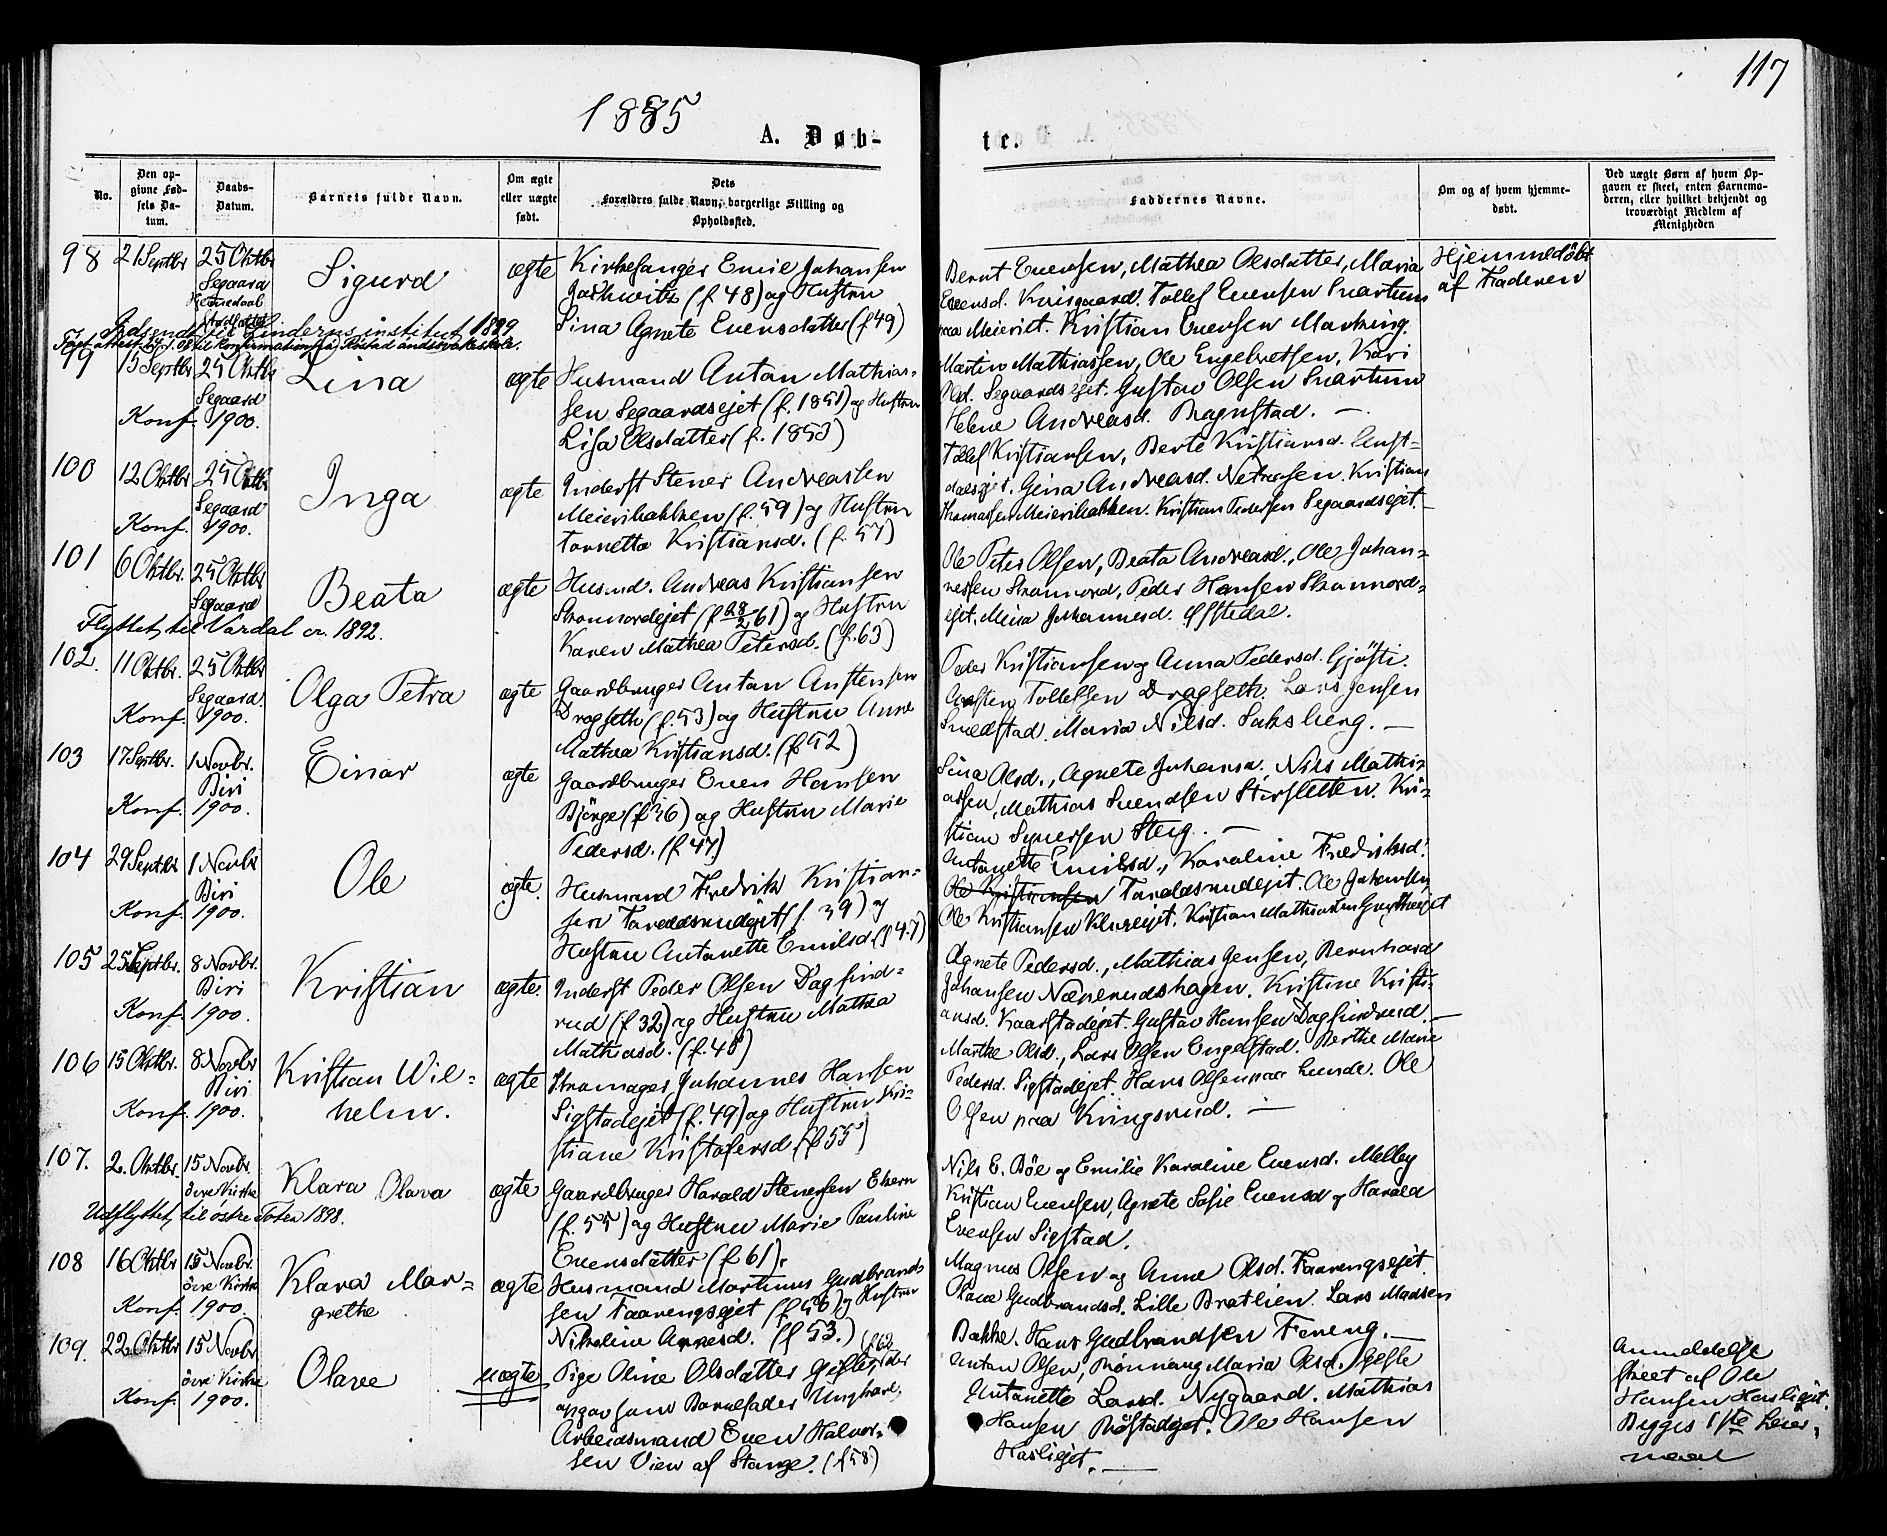 117
1885
A. Døb-
te.
No.
Den op-
givne Fød-
sels Da-
tum.
Daabs-
Datum.
Barnets fulde Navn.
Om ægte
eller uægte
født.
Dets
Forældres fulde Navn, borgerlige Stilling og
Opholdssted.
Faddernes Navne.
Om og af hvem hjemme-
døbt.
Ved uægte Børn af hvem Op-
gaven er skeet, enten Barnemo-
deren, eller hvilket bekjendt og
troværdigt Medlem af
Menigheden
98 21 Septbr 25 Oktbr
Segaard
Hjemmedaab
Stadfæstet
Sigurd
ægte
Kirkesanger Emil Johansen
(f. 48) og Hustru
Sina Agnete Evensdatter (f 49)
Bernt Evensen, Mathea Olsdatter, Maria
Evensd. Kriisgaard. Tollef Evensen Svartum
paa Meieriet. Kristian Evensen
Hjemmedøbt
af Faderen
Indsendt til institut 1899
99 15 Septbr 25 Oktbr
Segaard
Konf. 1900.
Lina
ægte
Husmand Anton Mathias-
sen Segaardsejet (f. 1851) og Hustru
Lisa Olsdatter (f. 1853)
Martin Mathiassen, Ole Engebretsen, Kari
Old. Segaardsejet. Gustav Olsen Svartum
Helene Andreasd. Bragerstad. —
100 12 Oktbr 25 Oktbr
Segaard
Konf. 1900.
Inga
ægte
Inderst Stener Andreassen
Meieribakken (f. 59) og Hustru
Tornetta Kristiansd. (f. 57)
Tollef Kristiansen, Berte Kristiansd.
Gina Andreasd. Kristian
Thomassen Meieribakken. Kristian Pedersen Segaardsejet. —
101 6 Oktbr. 25 Oktbr
Segaard
Beata
ægte
Husmd. Andreas Kristiansen
Skonnordejet (f 28/2 61) og Hustru
Karen Mathea Petersd. (f. 63)
Ole Peter Olsen, Beata Andreasd., Ole Johan-
nessen Skonnord, Peder Hansen Skonnord-
ejet. Mina Johannesd. Øfstedal.
Flyttet til Vardal cr. 1892.
102. 11 Oktbr. 25 Oktbr
Segaard
Konf. 1900.
Olga Petra
ægte
Gaardbruger Anton Anstensen
Dragseth (f. 53) og Hustru Anne
Mathea Kristiansd. (f 52)
Peder Kristiansen og Anna Pedersd. Gjøsti.
Austen Tollefsen Dragseth. Lars Jensen
Snedstad. Maria Nilsd. Saksberg. —
103 17 Septbr. 1 Novbr.
Biri
Konf. 1900.
Einar
ægte
Gaardbruger Even Hansen
Bjørge (f 36) og Hustru Marie
Pedersd. (f 47)
Sina Olsd., Agnete Johansd. Nils Mathi-
assen, Mathias Svendsen Stirsletten. Kri-
stian Syversen Steig. —
104 29 Septbr 1 Novbr
Biri
Konf. 1900.
Ole
ægte.
Husmand Fredrik Kristian-
sen (f. 39) og
Hustru Antonette Emilsd (f 47)
Antonette Emilsd., Karoline Fredriksd.
Ole Kristiansen Ole Johansen,
Ole Kristiansen Klureejet. Kristian Mathiassen
105 25 Septbr. 8 Novbr.
Biri
Konf. 1900.
Kristian
ægte.
Inderst Peder Olsen Dagfind-
rud (f 32) og Hustru Mathea
Mathiasd. (f. 48)
Agnete Pedersd., Mathias Jensen, Bernhard
Johansen Nærerudshagen. Kristine Kristi-
ansd. Kaarstadejet. Gustav Hansen Dagfindrud. —
106 15 Oktbr. 8 Novbr
Biri
Konf. 1900.
Kristian Wil-
helm.
ægte
Skomager Johannes Hansen
Sigstadejet (f. 49) og Hustru Kri-
stiane Kristofersd (f 55)
Marthe Olsd., Lars Olsen Engelstad. Berthe Marie
Pedersd. Sigstadejet. Hans Olsen paa Lunde. Ole
Olsen paa Kringsrud. —
107. 2. Oktbr. 15 Novbr.
övre Kirke
Klara Olava
ægte
Gaardbruger Harald Stenersen Ekern
(f. 55) og Hustru Marie Pauline
Evensdatter (f 61).
Nils E. Bøe og Emilie Karoline Evensd. Melby
Kristian Evensen, Agnete Sofie Evensd og Harald
Evensen Sigstad.
Udflyttet til östre Toten 1898.
108 16 Oktbr 15 Novbr
övre Kirke
Konf. 1900.
Klara Mar-
grethe
ægte
Husmand Martinus Gudbrand-
sen Faavengsejet (f. 56) og Hustru
Nikoline Arnesd. (f 53.)
Magnus Olsen og Anne Olsd. Faavengsejet
Olava Gudbrandsd. Lille Bratlien. Lars Madsen
Bakke. Hans Gudbrandsen Feveng. —
109. 22 Oktbr 15 Novbr
övre Kirke
Konf. 1900.
Olave
uægte
Pige Oline Olsdatter Gifle, (f 62) der
opgav som Barnefader Ungkarl,
Arbeidsmand Even Halvor-
sen Vien af Stange. (f 58)
Anton Olsen, Rønnaug Maria Olsd. Gefle
Antonette Larsd. Nygaard. Mathias
Hansen Røstadejet. Ole Hansen
Hasliejet. —
Anmeldelse
skeet af Ole
Hansen Hasliejet.
Begges 1ste Leier-
maal